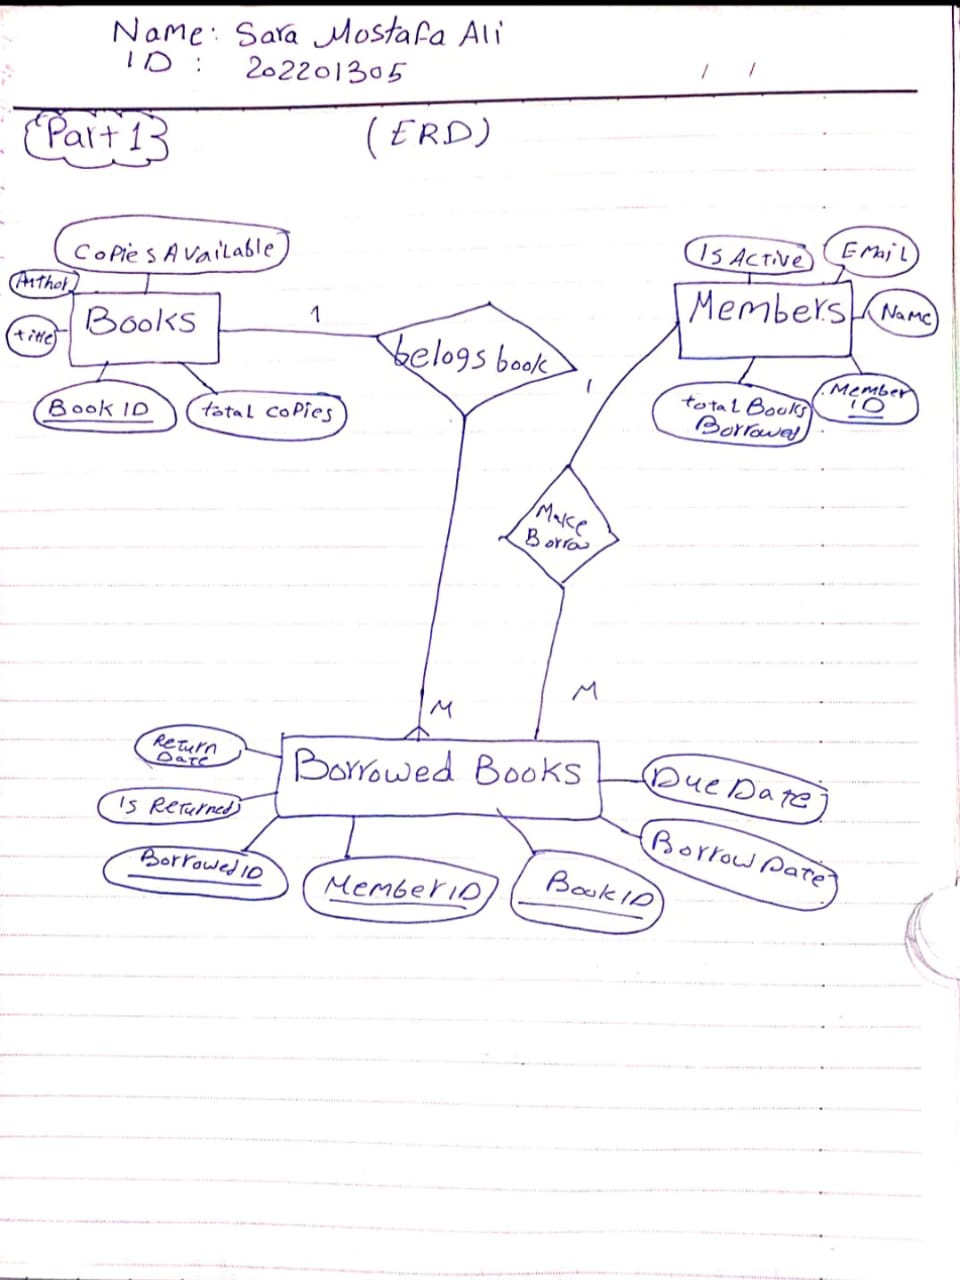 Name: Sara Mostafa Ali
ID : 202201305
/ /
Part 1
(ERD)
Copies Available
Author
title
Books
Book ID
total copies
1
belogs book
Is Active
Email
Members
Name
total Books
Borrowed
Member
ID
1
Make
Borrow
M
M
Return
Date
Borrowed Books
Due Date
Is Returned
Borrow Date
Borrowed ID
Member ID
Book ID